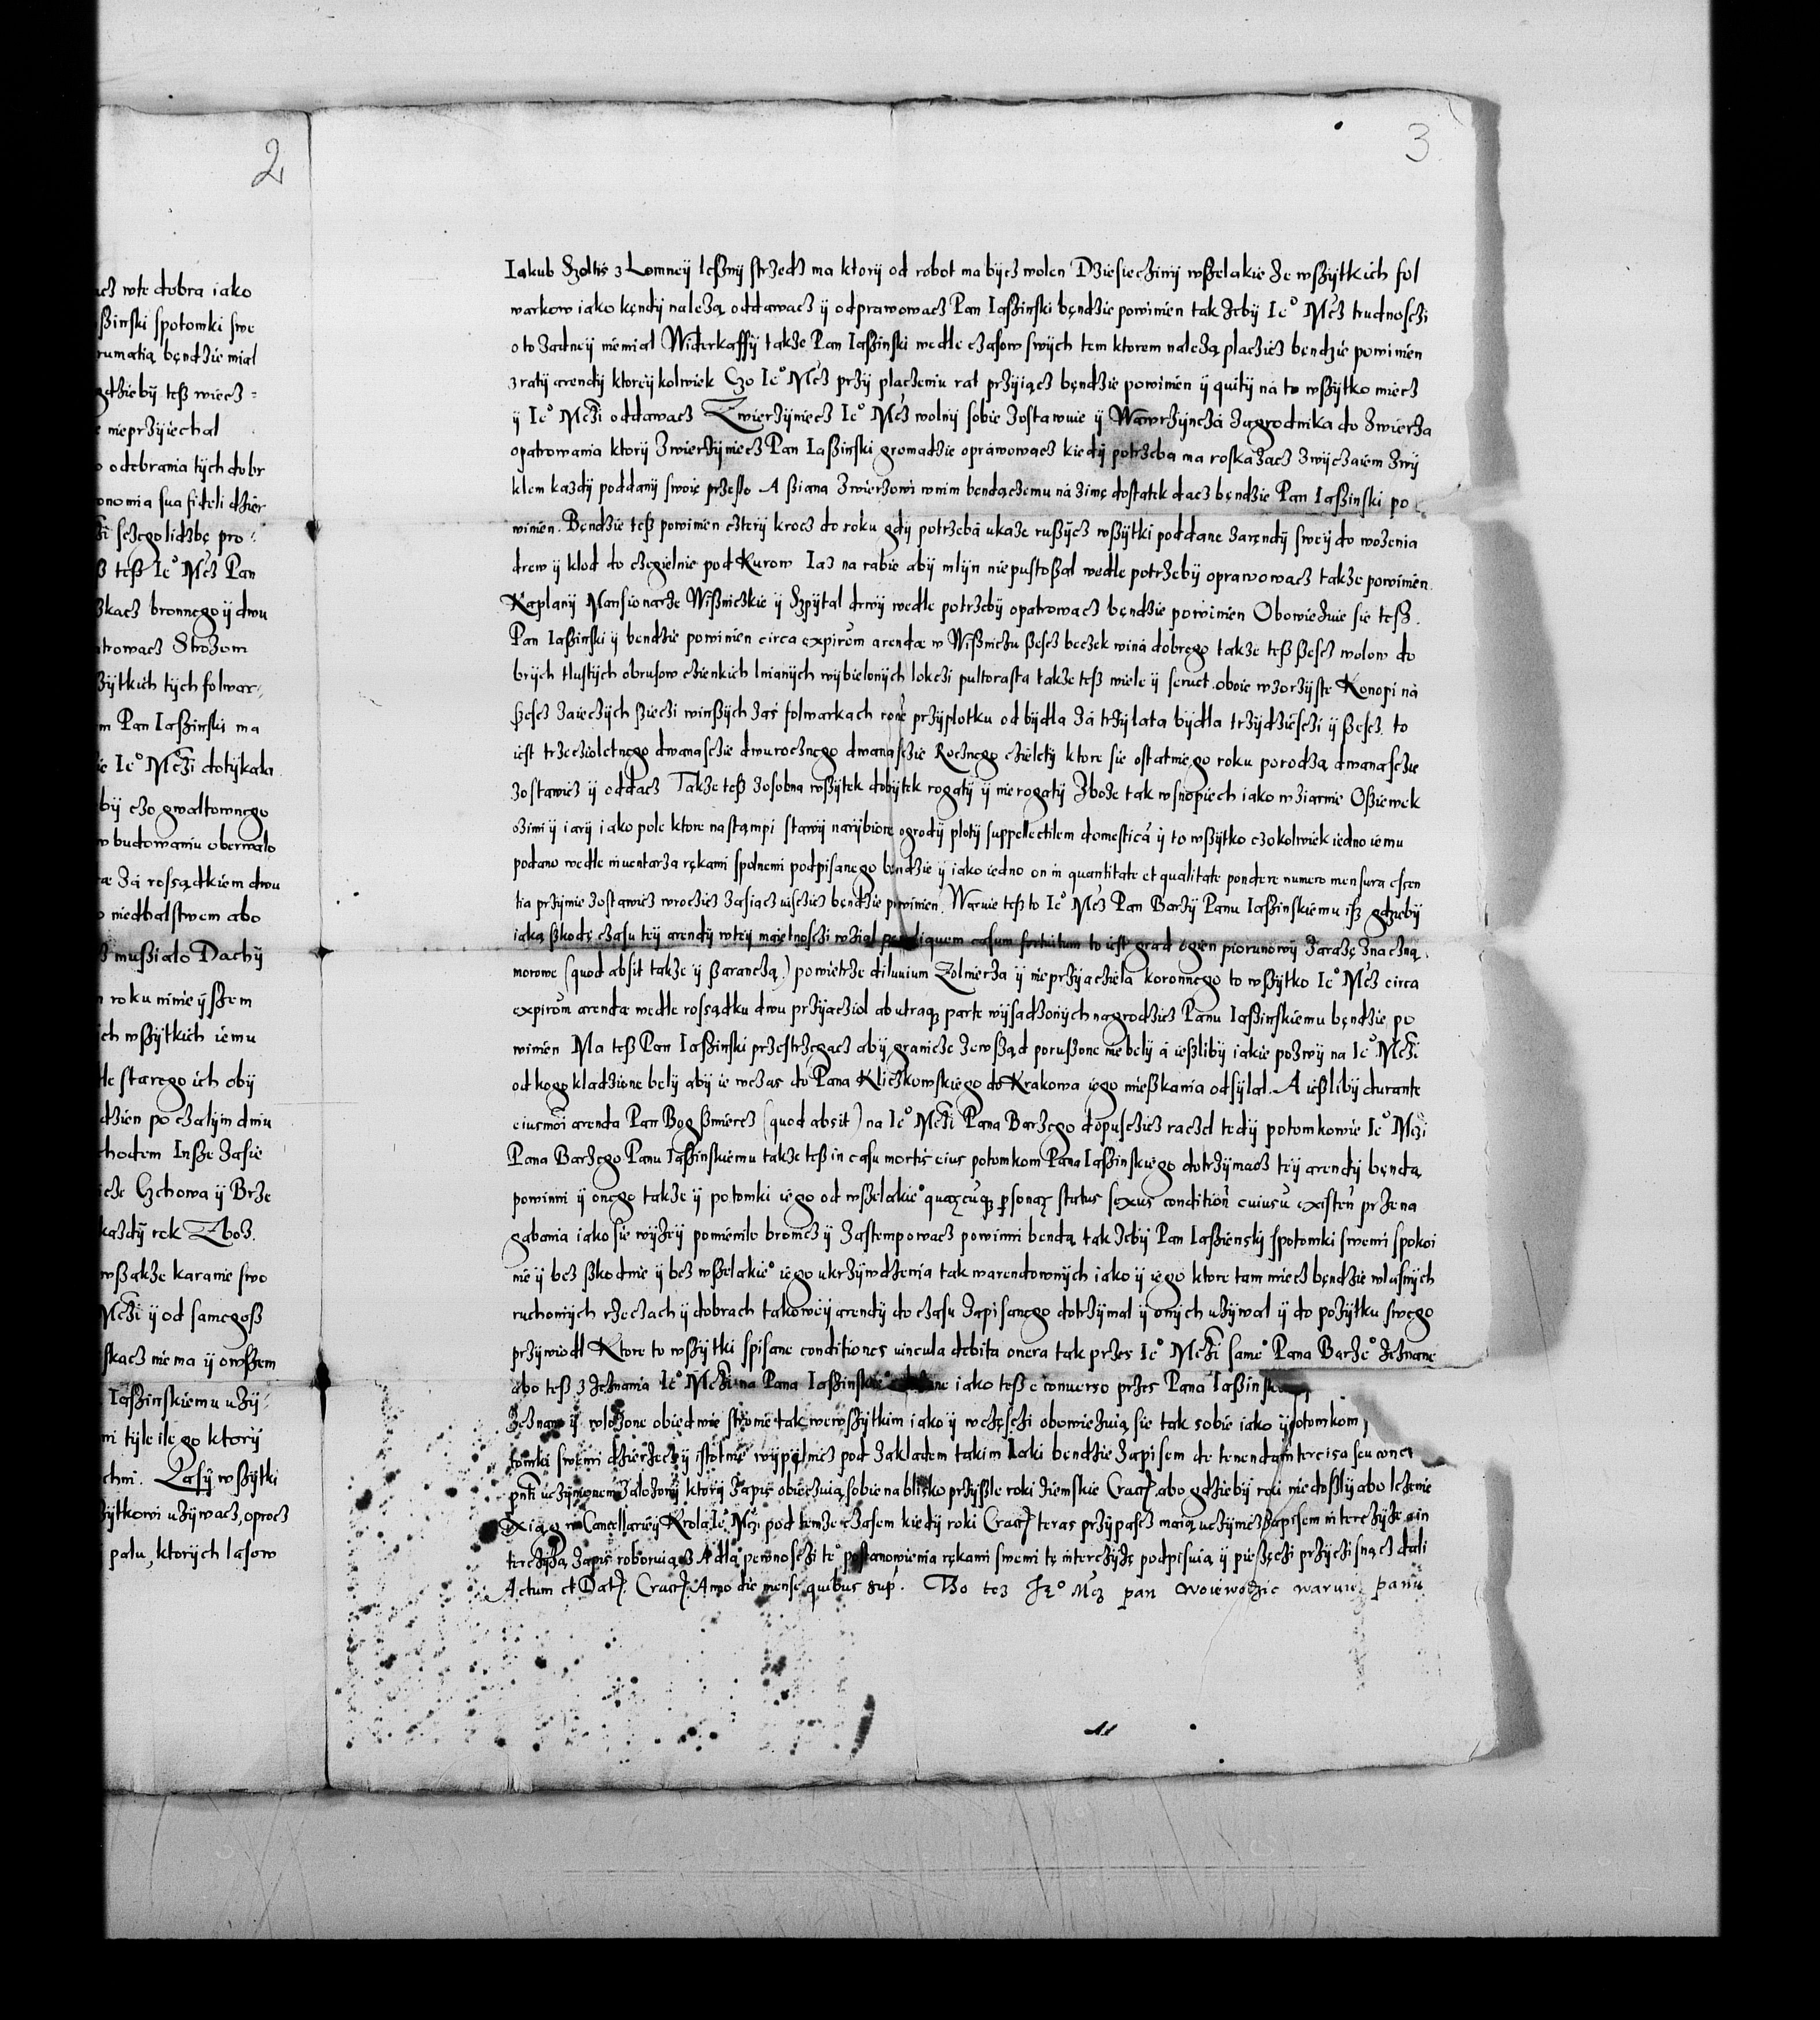 2
acz w te dobra iako
szinski spotomki swe
rumatią bęndzie mial
gdzieby tesz wiecz
e nieprzyiechal
o odebrania tych dobr
onomia sua fideli dzier
sczego lidzbę pro
sz tesz Ie° Mcz Pan
zkacz bronnego ÿ dwu
trowacz Strozom
szÿtkich tÿch folwar
m Pan Iaszinski ma
ie Ie° Mczi dotÿkala
bÿ czo gwaltownego
w budowaniu oberwalo
æ zá rossądkiem dwu
o niedbalstwem abo
ż musialo Dachÿ
n roku ninieÿszem
ÿch wszÿtkich iemu
dle starego ich obÿ
dzien po czalÿm dniu
chodem Insze zasie
icze Czchowa ÿ Brze
kazdÿ rok Zboz.
wszakze karanie swo
Mczi ÿ od samegosz
skacz nie ma ÿ owszem
Iaszinskiemu uzÿ
ni tÿle ile go ktorÿ
chni. Lasÿ wszÿtki
zÿtkowi uzÿwacz, oprocz
palu, ktorÿch lasow
3
Iakub Szoltis z Lomneÿ lesznÿ strzedz ma ktorÿ od robot ma bÿcz wolen Dziesiecinÿ wszelakie ze wszÿtkich fol
warkow iako kęndÿ nalezą oddawacz ÿ odprawowacz Pan Iaszinski bęndzie powinien tak zebÿ Ie° Mcz trudnosczi
o to zadneÿ niemial Widerkaffÿ takze Pan Iaszinski wedle czasow swÿch tem ktorem nalezą placzicz bęndzie powinien
z ratÿ arendÿ ktoreÿkolwiek Czo Ie° Mcz przÿ placzeniu rat przÿiącz bęndzie powinien ÿ quitÿ na to wszÿtko miecz
ÿ Ie° Mczi oddawacz Zwierzÿniecz Ie° Mcz wolnÿ sobie zostawuie ÿ Wawrzÿnczá zagrodnika do zwierza
opatrowania ktorÿ zwierzÿniecz Pan Iaszinski gromadzie oprawowacz kiedÿ potrzeba ma roskazacz zwÿczaiem zwÿ
klem kazdÿ poddanÿ swoie przeslo A sziana zwierzowi wnim bendączemu ná zimę dostatek dacz bęndzie Pan Iaszinski po
winien. Bęndzie tesz powinien czterÿ krocz do roku gdÿ potrzebá ukaze ruszÿcz wszÿtki poddane zarendÿ sweÿ do wozenia
drew ÿ klod do czegielnie pod Kurow Iaz na rabie abÿ mlÿn niepustoszal wedle potrzebÿ oprawowacz takze powinien.
Kaplanÿ Mansionarze Wiszniczkie ÿ Szpÿtal drwÿ wedle potrzebÿ opatrowacz bęndzie powinien Obowiezuie sie tesz.
Pan Iaszinski ÿ bendzie powinien circa expirom arendæ w Wiszniczu szescz beczek winá dobrego takze tesz szescz wolow do
brÿch tlustÿch obrusow czienkich lnianÿch wÿbielonÿch lokczi pultorasta takze tesz wiele ÿ seruet. oboie wzorzÿste Konopi ná
szescz zaieczÿch sieczi winszÿch zas folwarkach przÿplotku od bÿdla zá trzÿ lata bÿdla trzÿdziesczi ÿ szescz. to
iest trzeczioletnego dwanasczie dwurocznego dwanasczie Rocznego czieletÿ ktore sie ostatniego roku porodzą dwanasczie
zostawicz ÿ oddacz Takze tesz zosobna wszÿtek dobÿtek rogatÿ ÿ nierogatÿ Zboze tak wsnopiech iako wziarnie Osziewek
ozimÿ ÿ iarÿ iako pole ktore nastąmpi stawÿ narÿbione ogrodÿ plotÿ suppellectilem domesticá ÿ to wszÿtko czokolwiek iedno iemu
podano wedle inuentarza rękami spolnemi podpisanego bendzie ÿ iako iedno on in quantitate et qualitate pondere numero mensura essen
tia przÿmie zostawicz wroczicz zasiacz uisczicz bęndzie powinien. Waruie tesz to Ie° Mcz Pan Barzÿ Panu Iaszinskiemu isz gdziebÿ
iaką szkodę czasu teÿ arendÿ wteÿ maiętnosczi wzial casum fortuitum to iest grad ogien piorunowÿ zarazę znaczną
morowe (quod absit takze ÿ szaranczą) powietrze diluuium Zolnierza ÿ nieprzÿacziela koronnego to wszÿtko Ie° Mcz circa
expirom arendæ wedle rossądku dwu przÿacziol ab utraq; parte wÿsadzonÿch nagrodzicz Panu Iaszinskiemu bęndzie po
winien Ma tesz Pan Iaszinski przestrzegacz abÿ granicze zewsząd poruszone niebelÿ á iesliby iakie pozwÿ na Ie° Mczi
od kogo kladzione belÿ abÿ ie wczas do Pana Kliczkowskiego do Krakowa iego mieszkania odsÿlal. A ieslibÿ durante
eiusmoi arenda Pan Bog szmiercz (quod absit) na Ie° Mczi Pana Barzego dopusczicz raczel tedÿ potomkowie Ie° Mczi
Pana Barzego Panu Iaszinskiemu takze tesz in casu mortis eius potomkom Pana Iaszinskiego dotrzÿmacz teÿ arendÿ bęndą
powinni ÿ onego takze ÿ potomki iego od wszelakie° status sexus conditioń przena
gabania iako sie wÿzeÿ pomienilo bronicz ÿ zastempowacz powinni bendą tak zebÿ Pan Iaszienskÿ spotomki swemi spokoi
nie ÿ bez szkodnie ÿ bez wszelakie° iego ukrzÿwdzenia tak warendownÿch iako ÿ iego ktore tam miecz bęndzie wlasnÿch
ruchomÿch rzeczach ÿ dobrach takoweÿ arendÿ do czasu zapisanego dotrzÿmal ÿ onÿch uzÿwal ÿ do pozÿtku swego
przÿwiodl Ktore to wszÿtki spisane conditiones uincula debita onera tak przes Ie° Mczi same° Pana Barze° zeznane
abo tesz z zeznania Ie° Mczi na Pana iako tesz e conuerso przes Pana
zeznane ÿ wlozone obiedwie stronie tak wewszÿtkim iako ÿ wczesczi obowiezuią sie tak sobie iako ÿ potomkom
tomki swemi dzierzecz ÿ istotnie wÿpelnicz pod zakladem takim iaki bendzie zapisem de tenenda intercisa seu
uczÿnionem zalozonÿ ktorÿ zapis obieczuią sobie na blisko przÿszle roki ziemskie Cracz. abo gdziebÿ roki niedoszlÿ abo lezenie
Xiąg w Cancellarieÿ Krola Ie° Mczi pod temze czasem kiedÿ roki Cracz teras przÿpascz maią uczÿnicz zapisem interczÿze a in
terczÿzą zapis roboruiącz Adla pewnosczi te° postanowienia rękami swemi tę interczÿzę podpisuią ÿ pieczęci przÿczisnącz dali
Actum et Datz. Cracz. Anno die mense quibus sup. Tho tez Je° Mcz pan woiewodzic waruie panu